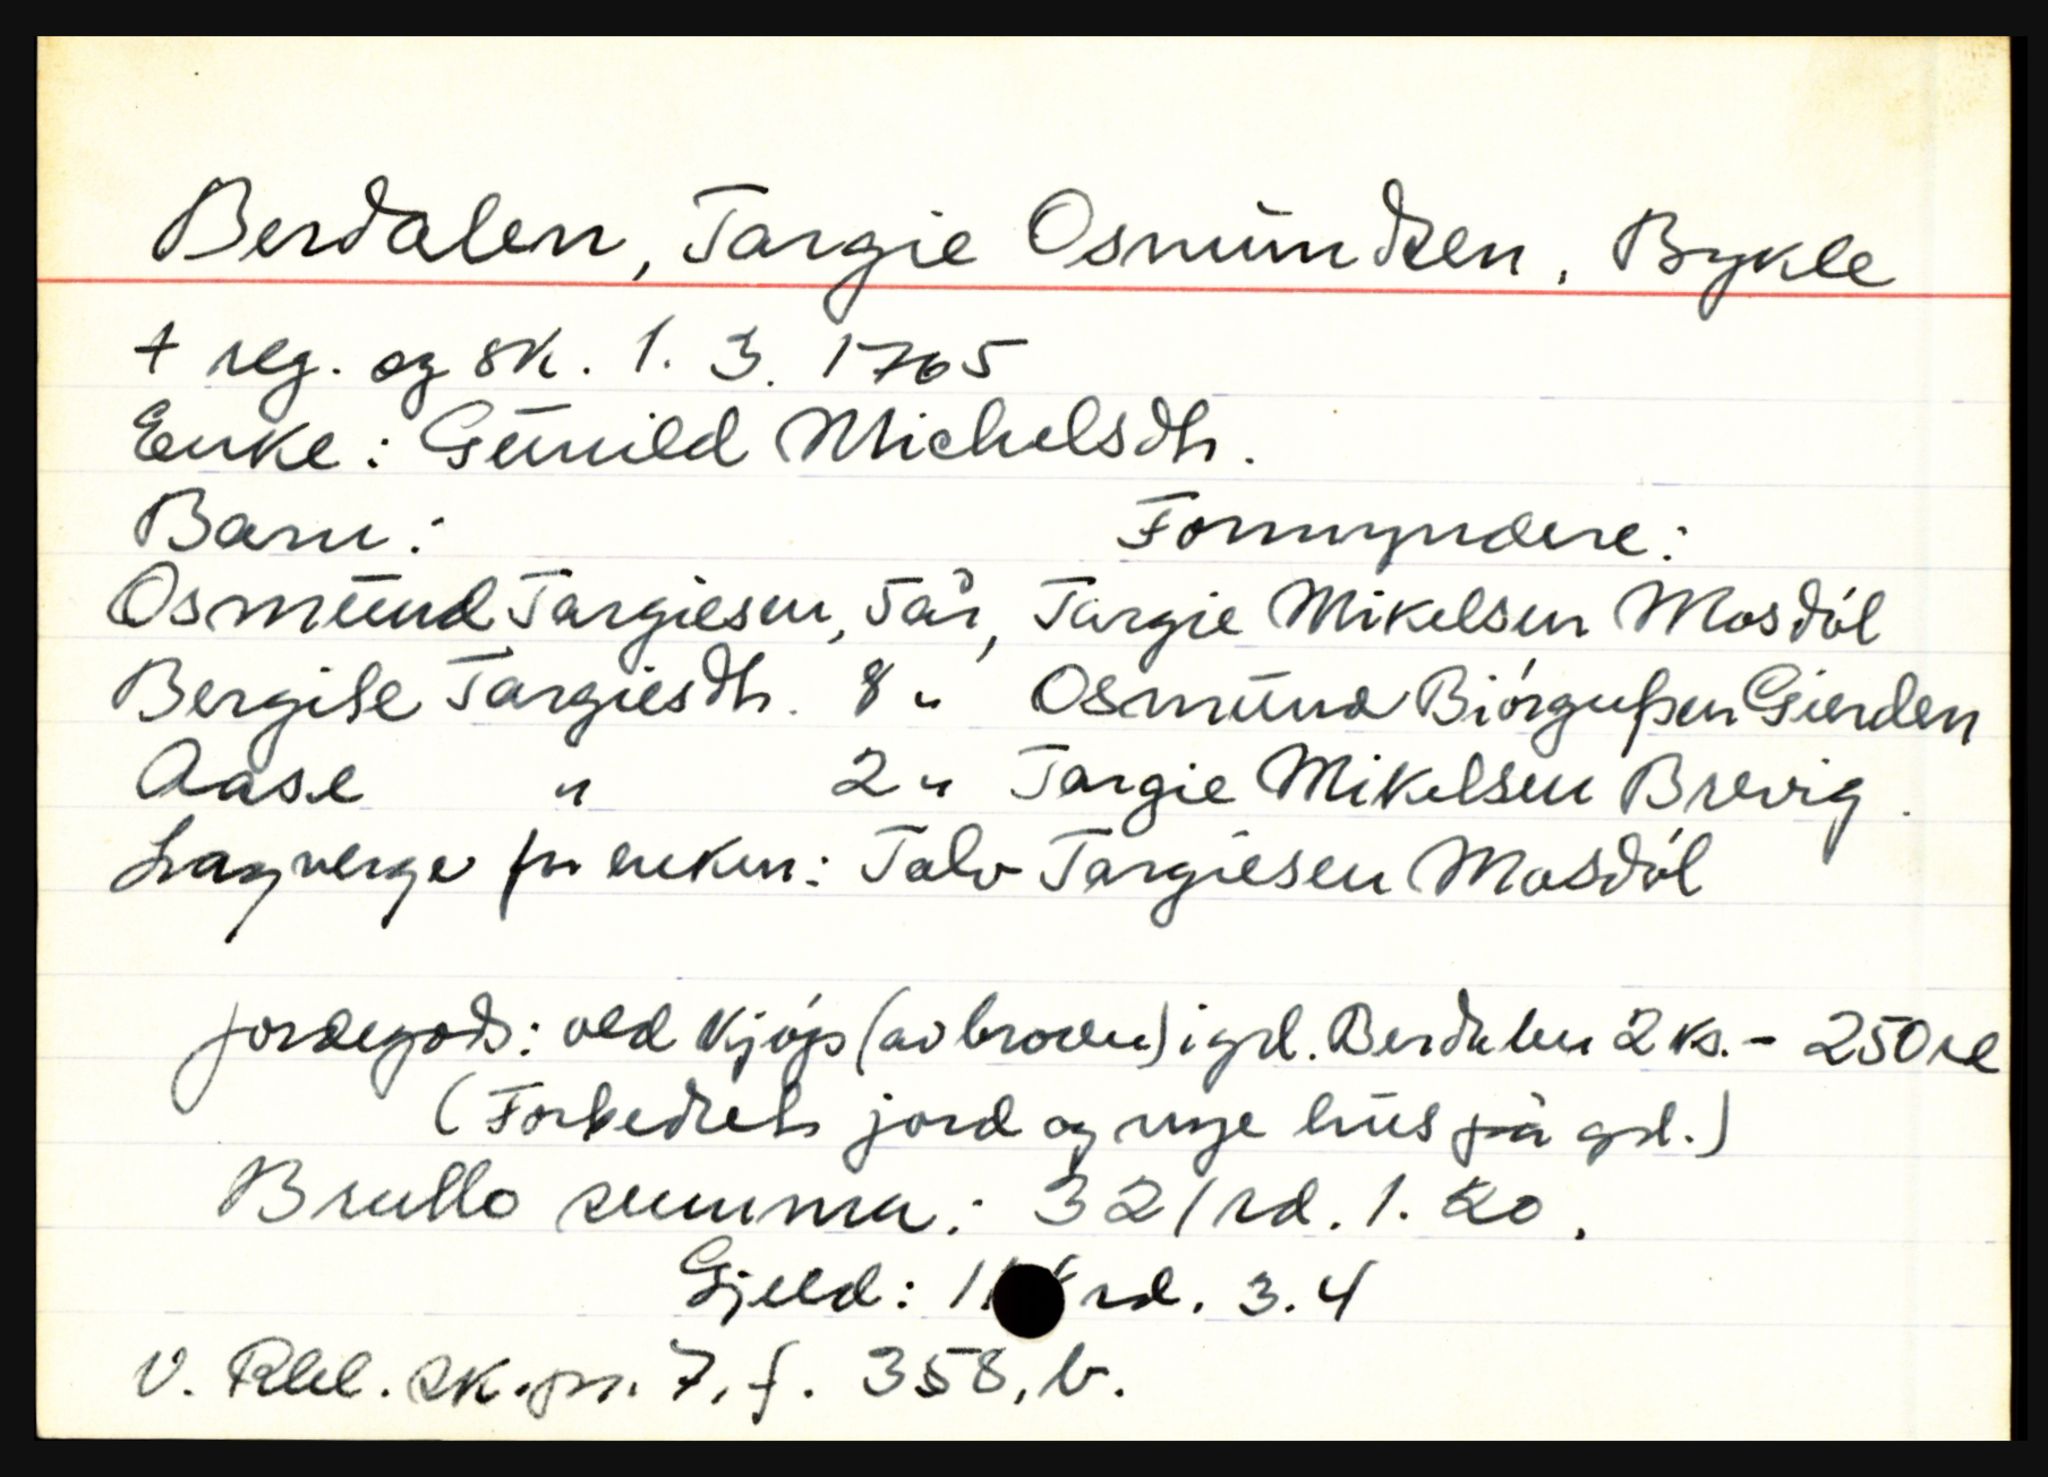 Berdalen, Targie Osmündsen, Bykle
+ reg. og sk. 1. 3. 1765
Enke: Günild Michelsdtr.
Barn: Formyndere:
Osmünd Targiesen, 5 år, Targie Mikelsen Mosdól
Bergite Targiesdtr. 8 " Osmünd Biórgußen Gierden
Aase " 2 " Targie Mikelsen Brevig.
Lagverge for enken: Talv Targiesen Mosdól
jordegods: ved kjóp (av broren) i grd. Berdalen 2 ks. - 250 rd
(Forbedret jord og nye hüs på grd.)
Brutto summa: 321 rd. 1. 20.
Gjeld: rd. 3. 4
V. Rbl. sk. pr. 7, f. 358, b.